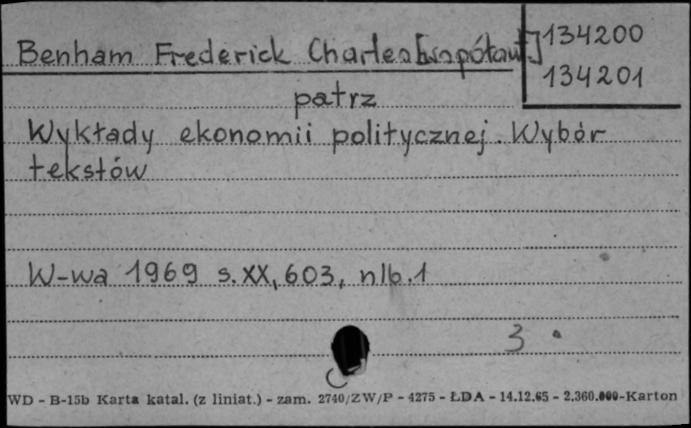 Benham Frederick Charles [współaut]
134200
134201
patrz
Wykłady ekonomii politycznej. Wybór
tekstów
W-wa 1969 s. XX, 603, nlb. 1
3
WD - B-15b Karta katal. (z liniat.) - zam. 2740/ZW/P - 4275 - ŁDA - 14.12.65 - 2.360.000-Karton